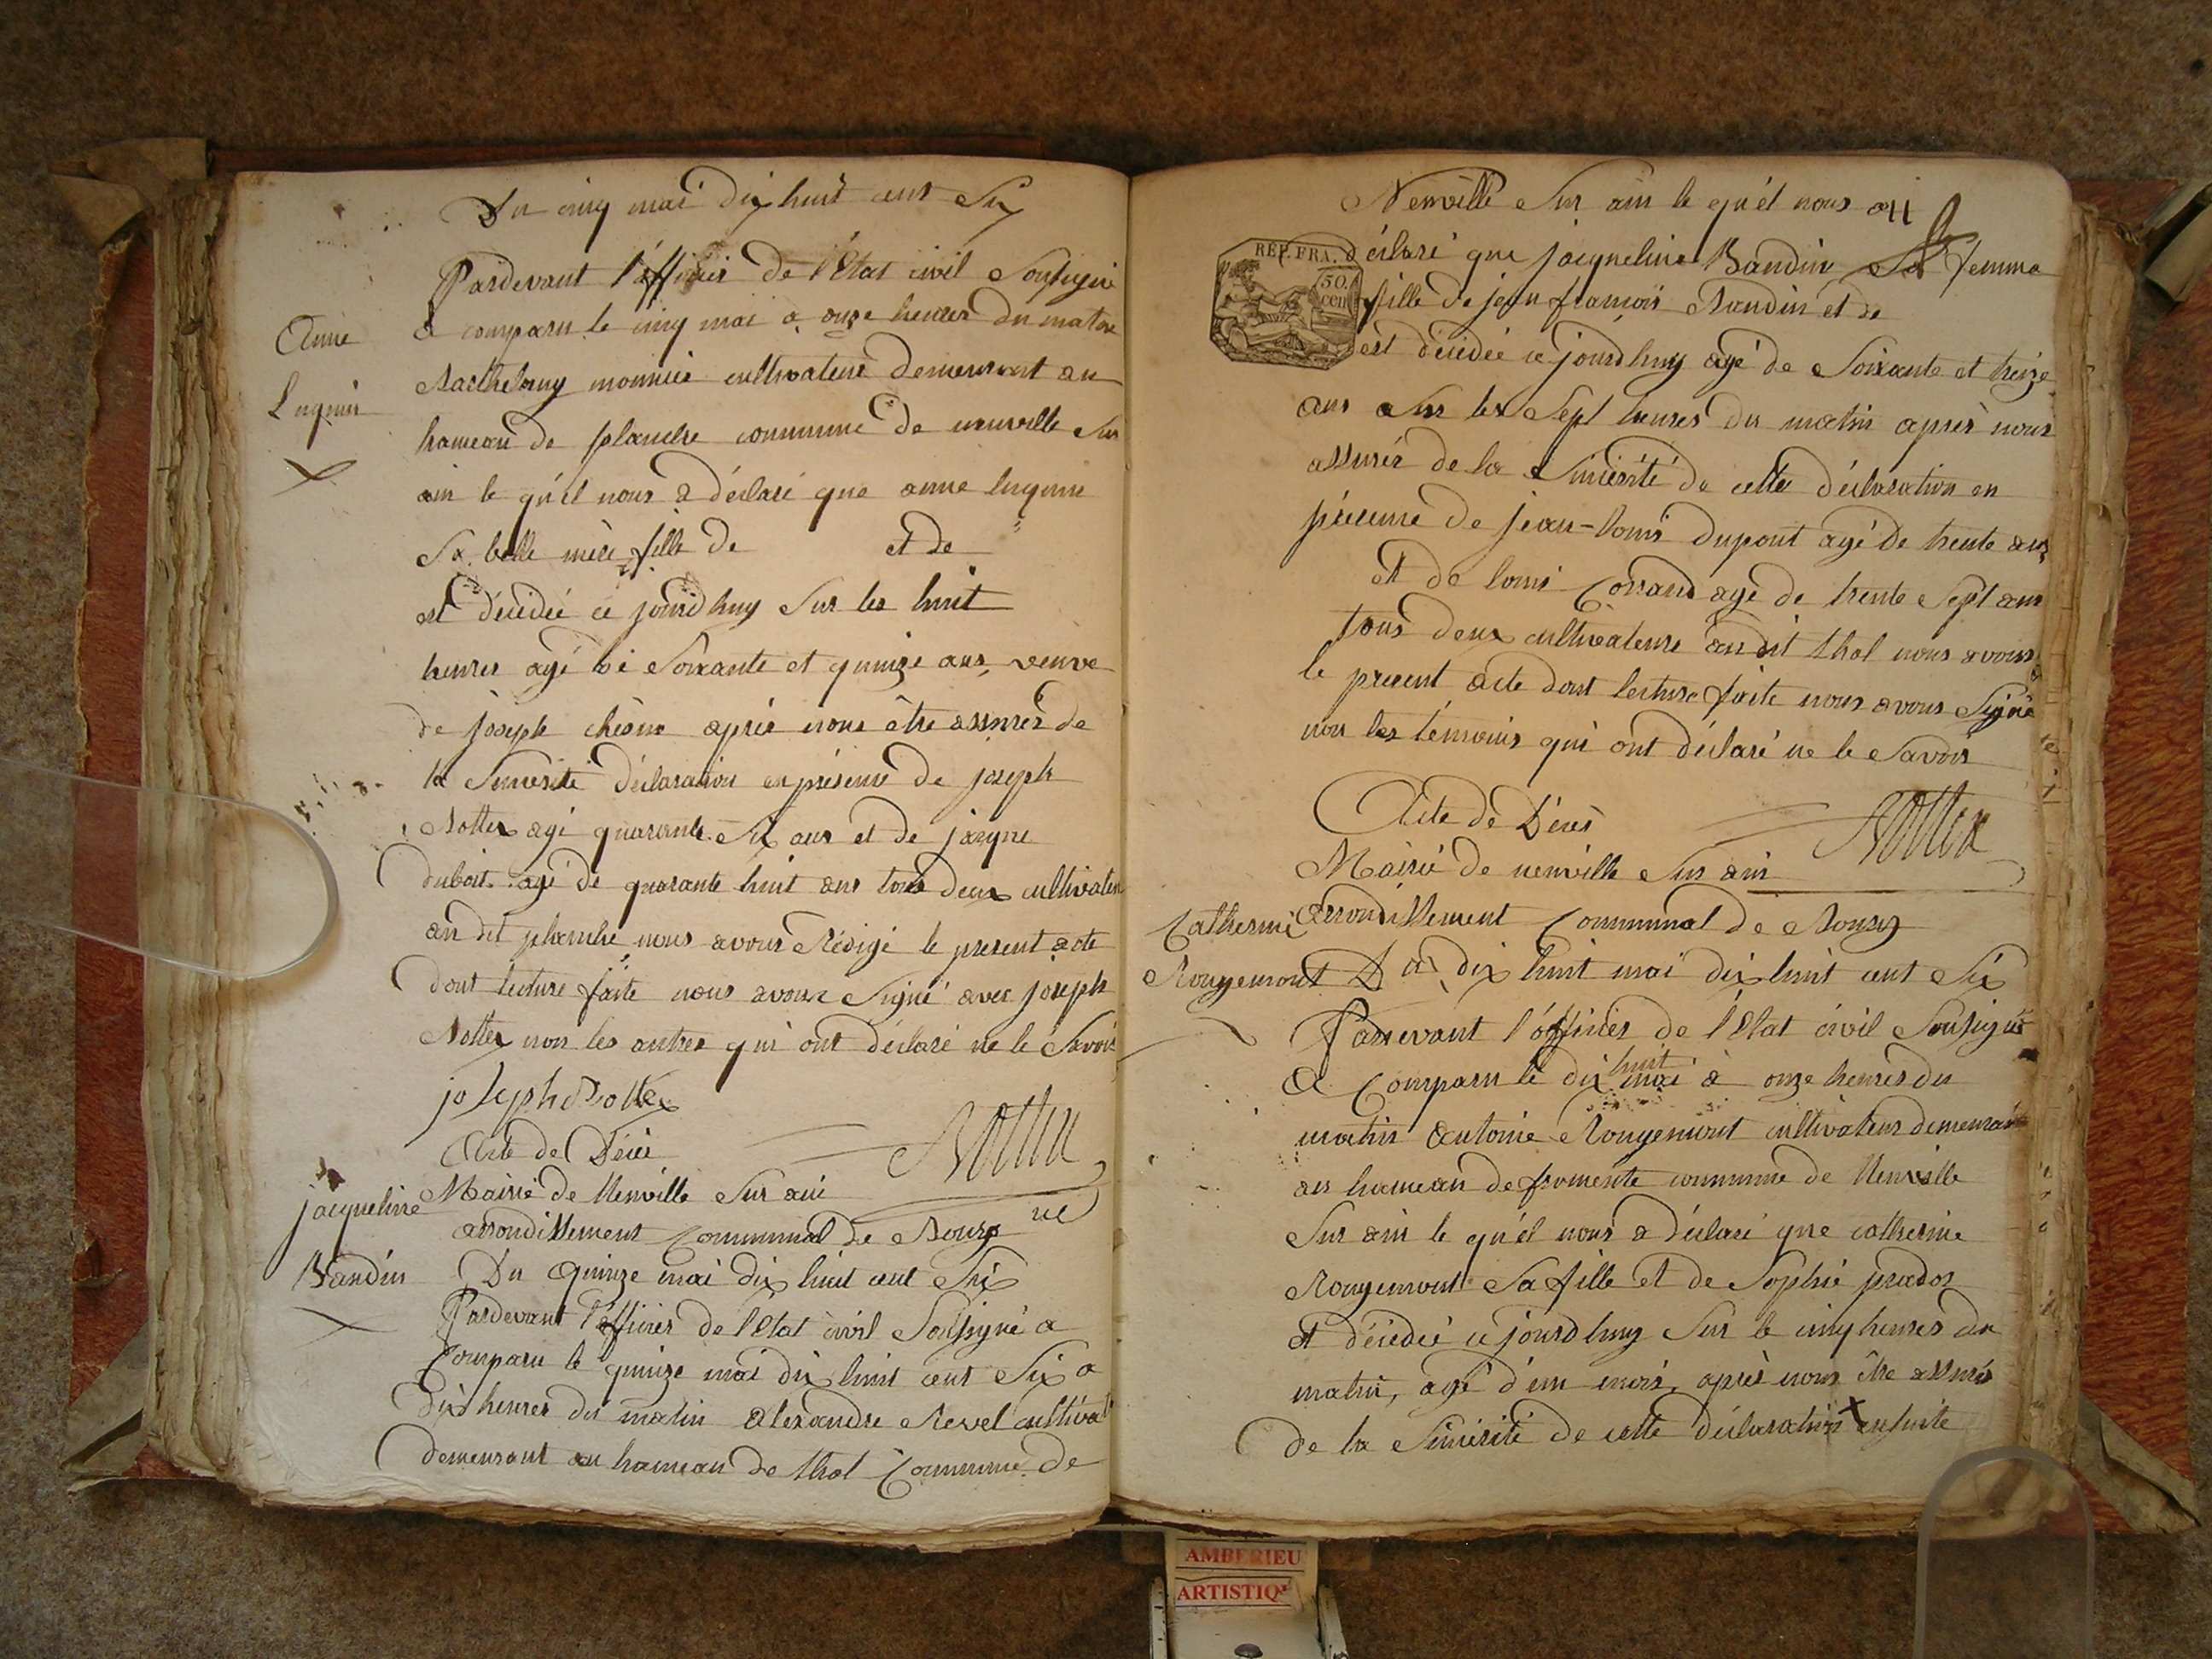 Du cinq mai dix huit cent Six
Pardevant l'officier de l'Etat civil Soussigné
a comparu le cinq mai à onze heures du matin
Barthelemy monnier cultivateur demeurant au
hameau de planche commune de neuville Sur
ain le qu'el nous a déclaré que anne luquine
Sa belle mère fille de et de
est décédée ce jourdhuy Sur les huit
heures agé de Soixante et quinze ans, veuve
de joseph chêne après nous être assurés de
la Sincerité déclaration en présence de joseph
Nottex agé quarante Six ans et de jacque
duboit agé de quarante huit ans tous deux cultivateur
au dit planche nous avons Rédigé le present acte
dont lecture faite nous avons Signé avec joseph
Nottex non les autres qui ont déclaré ne le Savoir
joseph Nottex
Acte de Décé
Mairie de Neuville Sur ain
arrondissement Communal de Bourg
Du Quinze mai dix huit cent Six
Pardevant l'officier de l'Etat civil Soussigné a
Comparu le quinze mai dix huit cent Six a
dix heures du matin alexandre Revel cultivat
demeurant au hameau de thol Commune de
Anne
Luquin
jacqueline
Bandin
Neuville Sur ain le qu'el nous a
REP. FRA.
50.
cen
déclaré que jacqueline Bandin Sa femme
fille de jean françois Bandin et de
est décédée ce jourdhuy agé de Soixante et treize
ans Sur les Sept heures du matin après nous
assurés de la Sincérité de cette déclaration en
présence de jean-louis dupont agé de trente ans
et de louis Corrand agé de trente Sept ans
tous deux cultivateurs au dit thol nous avons
le present acte dont lecture faite nous avons Signé
non les temoins qui ont déclaré ne le Savoir
Acte de Décès
Nottex
Mairie de neuville Sur ain
arrondissement Communal de Bourg
Du dix huit mai dix huit cent Six
Pardevant l'officier de l'Etat civil Soussigné
A Comparu le dix huit mai a onze heures du
matin Antoine Rougemont cultivateur demeurant
au hameau de fromente commune de Neuville
Sur ain le qu'el nous a déclaré que catherine
Rougemont Sa fille et de Sophie
est décédée ce jourdhuy Sur le cinq heures du
matin, agé d'un mois, après nous être assurés
de la Sincérité de cette déclaration ensuite
Catherine
Rougemont
AMBERIEU
ARTISTIQ